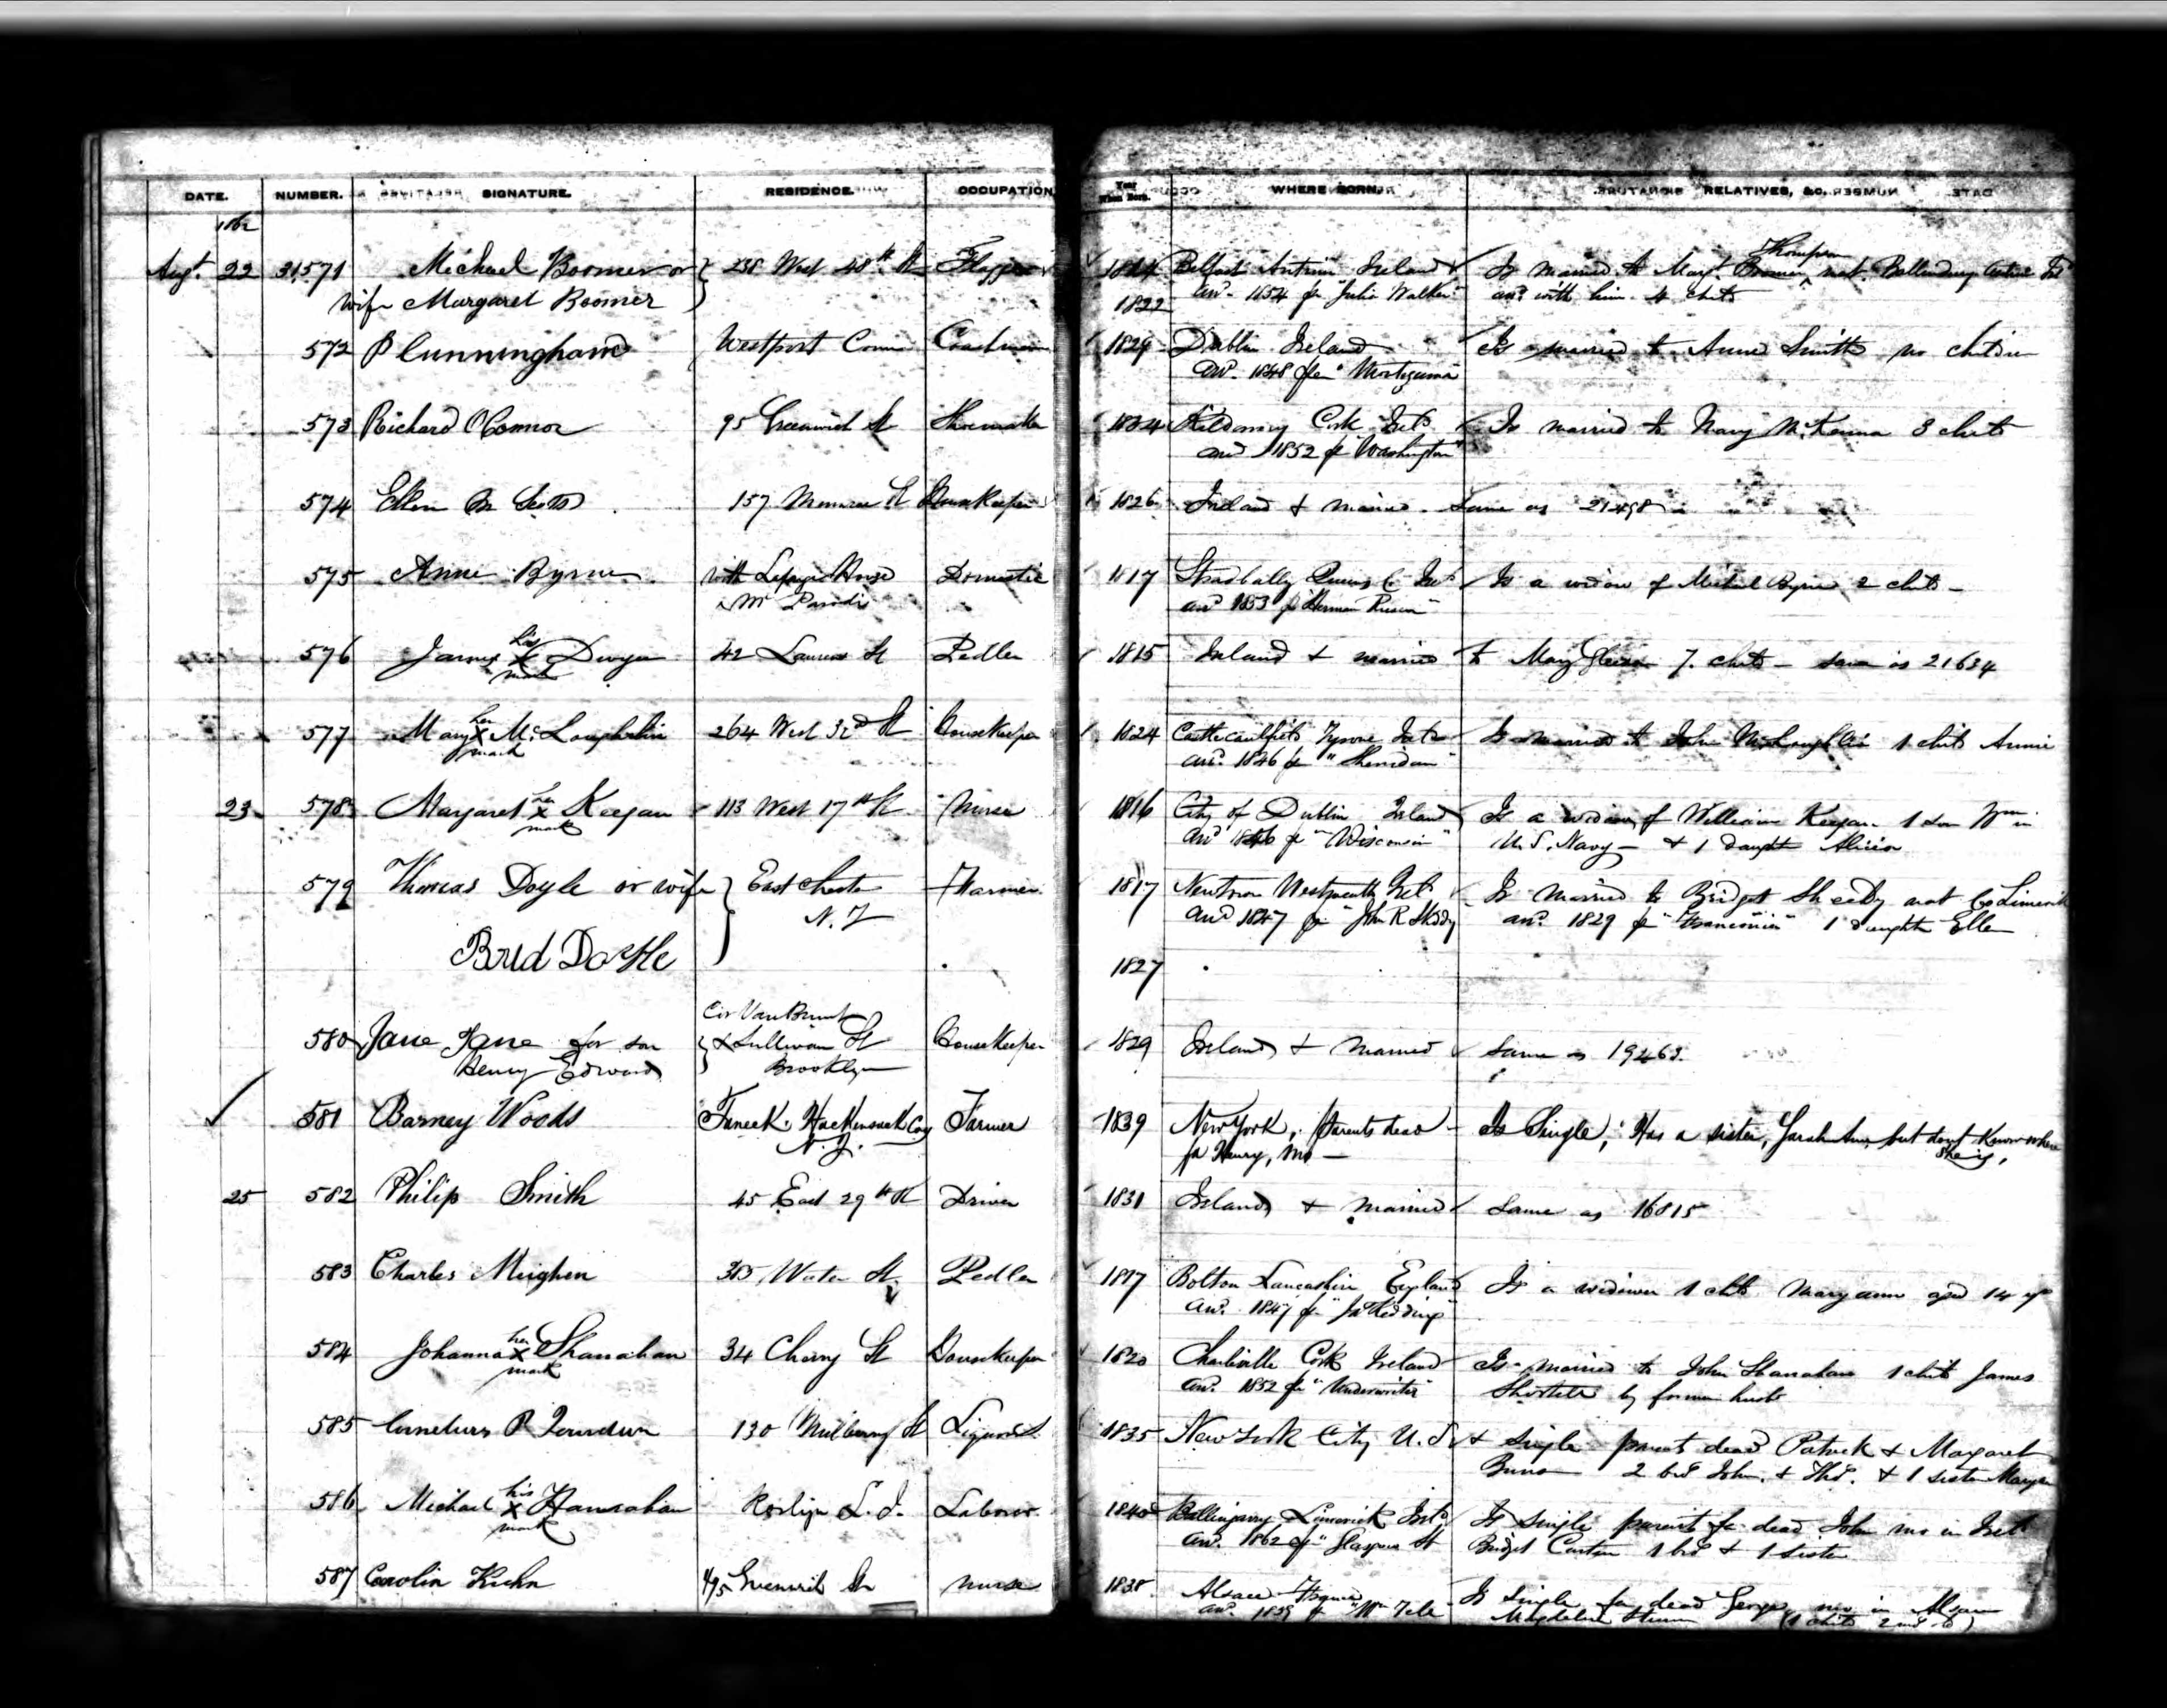 DATE. NUMBER. SIGNATURE. RESIDENCE. OCCUPATION Year When Born. WHERE BORN. RELATIVES, &c.
1862
Augt. 22 31571 Michael Boomer or 238 West 40th St 1824 Belfast Antrim Ireland Is married to Margt. Boomer Thompson nat.
wife Margaret Boomer 1822 arrd. 1854 pr "Julia Walker" arrd with him. 4 chds
572 P Cunningham Westport Conn Coachman 1829 Dublin Ireland Is married to Anne Smith no children
arr. 1848 pr "Montezuma"
573 Richard O'Connor 95 Greenwich St Shoemaker 1834 Cork Irld Is married to Mary McKenna 3 chds
arrd 1852 pr "Washington"
574 Ellen 157 Monroe St Housekeeper 1826 Ireland & married. Same as 21498
575 Anne Byrne with Lafarge House Domestic 1817 Stradbally Queens Co Irld Is a widow of Michael Byrne 2 chds
arrd 1853 pr
576 James his X mark Dwyer 42 Laurens St Pedler 1815 Ireland & married to Mary 7 chds - same as 21634
577 Mary her X mark McLoughlin 264 West 32d St Housekeeper 1824 Castlecaulfield, Tyrone Irld Is married to John McLoughlin 1 child Annie
arrd. 1846 pr "Sheridan"
23 578 Margaret her X mark Keegan 113 West 17th St Nurse 1816 City of Dublin Ireland Is a widow of William Keegan 1 son Wm in
arrd 1846 pr "Wisconsin" U.S. Navy - & 1 Daught Alicia
579 Thomas Doyle or wife East Chester Farmer 1817 Westmeath Irld Is married to Bridget Sheedy nat Co Limerick
N.Y arrd 1847 pr "John R Skiddy arrd. 1829 pr "Franconia" 1 daughter Ellen
Brid Doyle 1827
Cor Van Brunt
580 Jane Jane for son & Sullivan St Housekeeper 1829 Ireland & married same as 19463.
Henry Edward Brooklyn
581 Barney Woods Hackensack Coy Farmer 1839 New York, Parents dead Is Single, Has a sister, Sarah Ann, but dont know where
N.J. fa Henry, mo - she is,
25 582 Philip Smith 45 East 29th St Driver 1831 Ireland & married Same as 16815
583 Charles Meighen Water St. Pedler 1817 Bolton Lancashire England Is a widower 1 chld Mary ann aged 14 yrs
arrd. 1847 pr
584 Johanna her X mark Shanahan 34 Cherry St Housekeeper 1820 Charleville Cork Ireland Is married to John Shanahan 1 child James
arrd. 1852 pr "Underwriter" by former husb
585 Cornelius P 130 Mulberry St 1835 New York City U.S. & single parents dead Patrick & Margaret
2 bro John & & 1 sister
586 Michael his X mark Hanrahan Roslyn L.I. Laborer 1840 Ballingarry Limerick Irld. Is single parents fa dead John mo in Irld
arrd. 1862 pr "Glasgow" St Bridget 1 bro & 1 sister
587 Carolin Kuhn Greenwich St Nurse 1838 Alsace France Is single fa dead George mo in Alsace
arrd. 1859 pr Magdalena